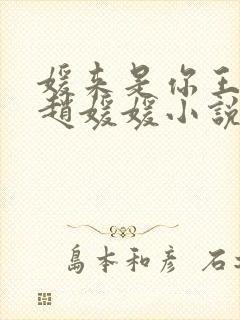 媛来是你王
趙媛媛小說
島本和彥 石